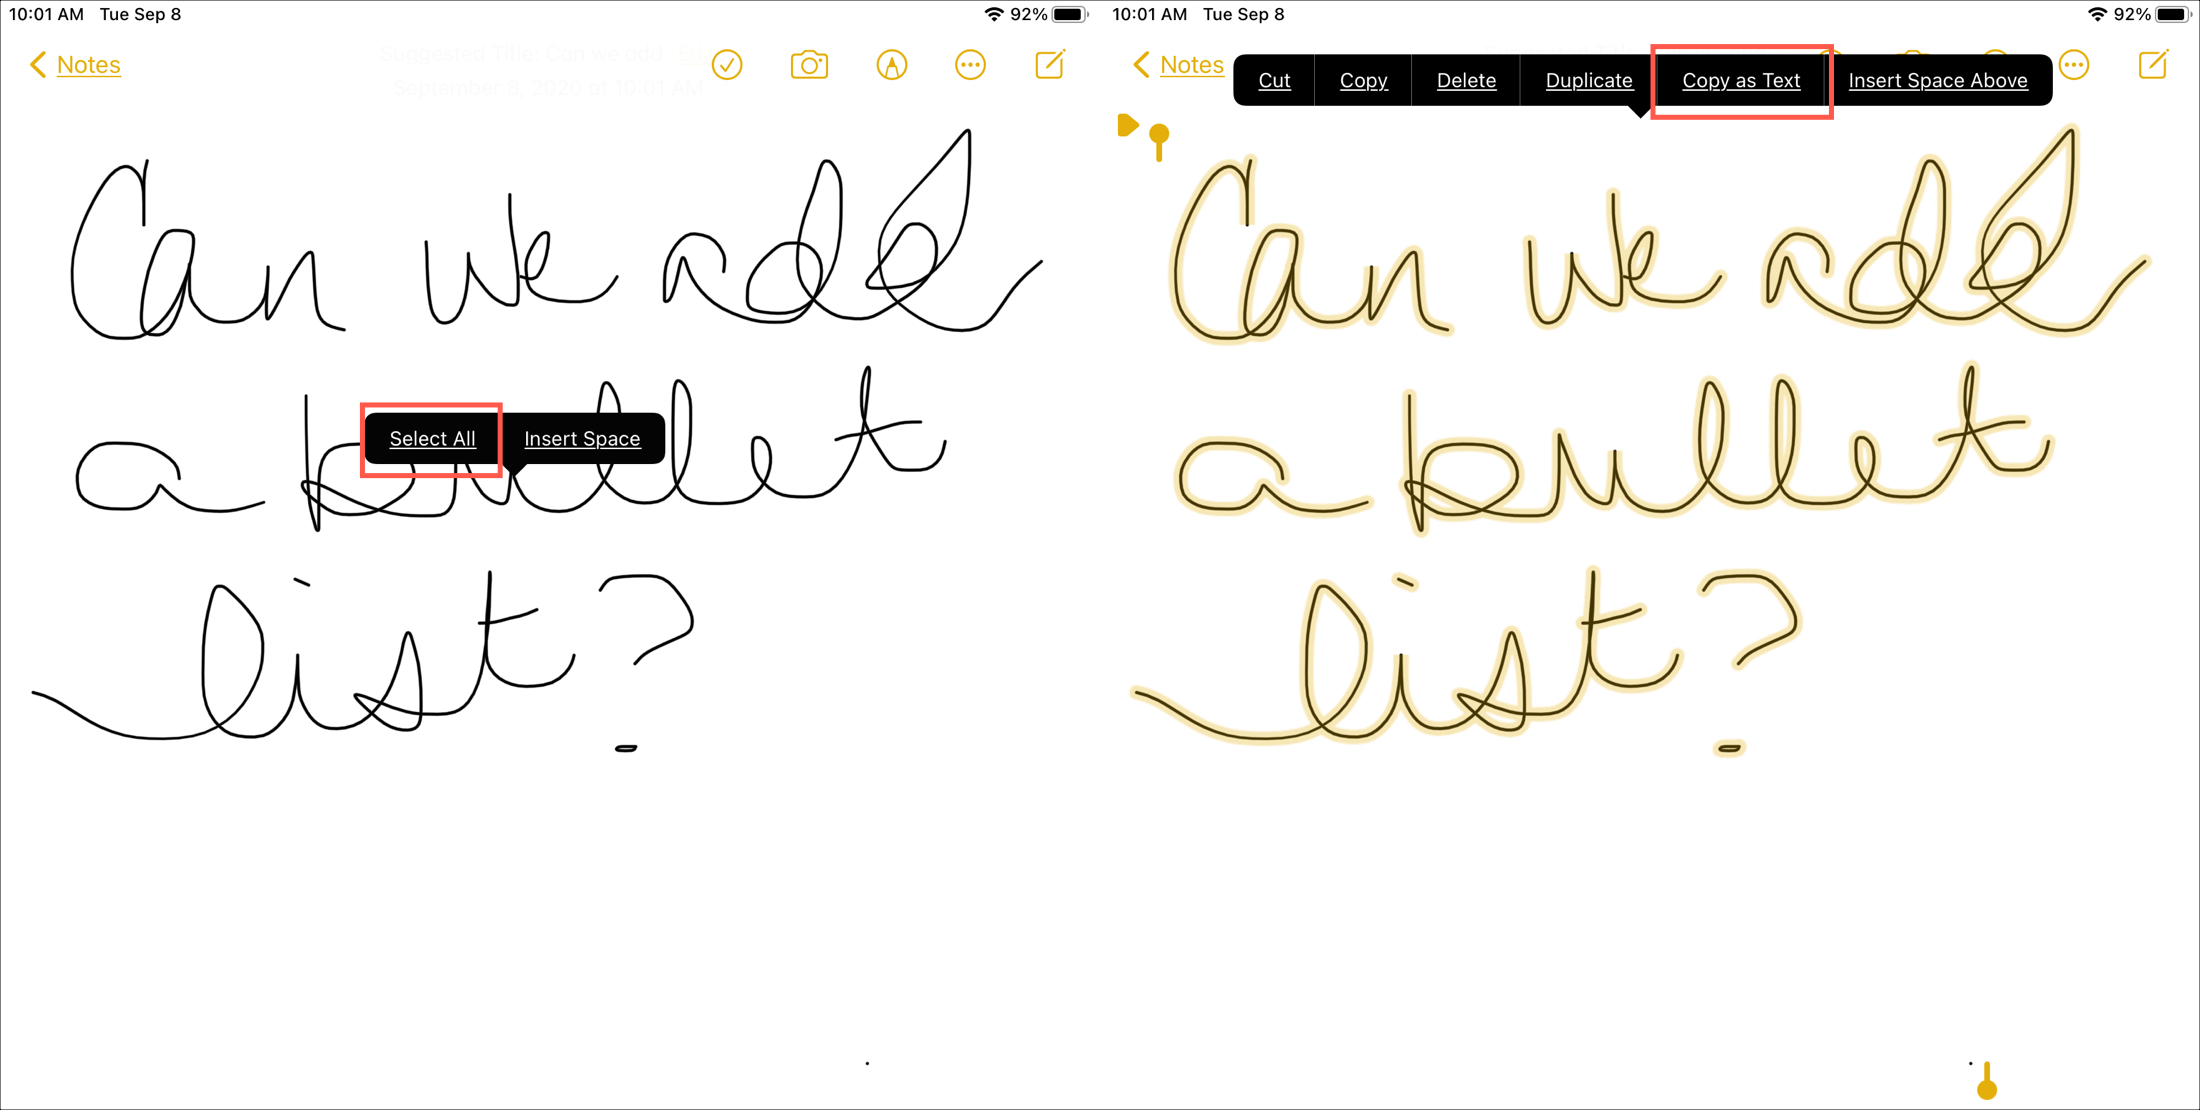 10:01 AM Tue Sep 8
92%
Notes
Suggested Title: Can we add
September 8, 2020 at 10:01 AM
Can we add
a bullet
Select All Insert Space
list?
10:01 AM Tue Sep 8
92%
Notes
Cut Copy Delete Duplicate Copy as Text Insert Space Above
Can we add
a bullet
list?